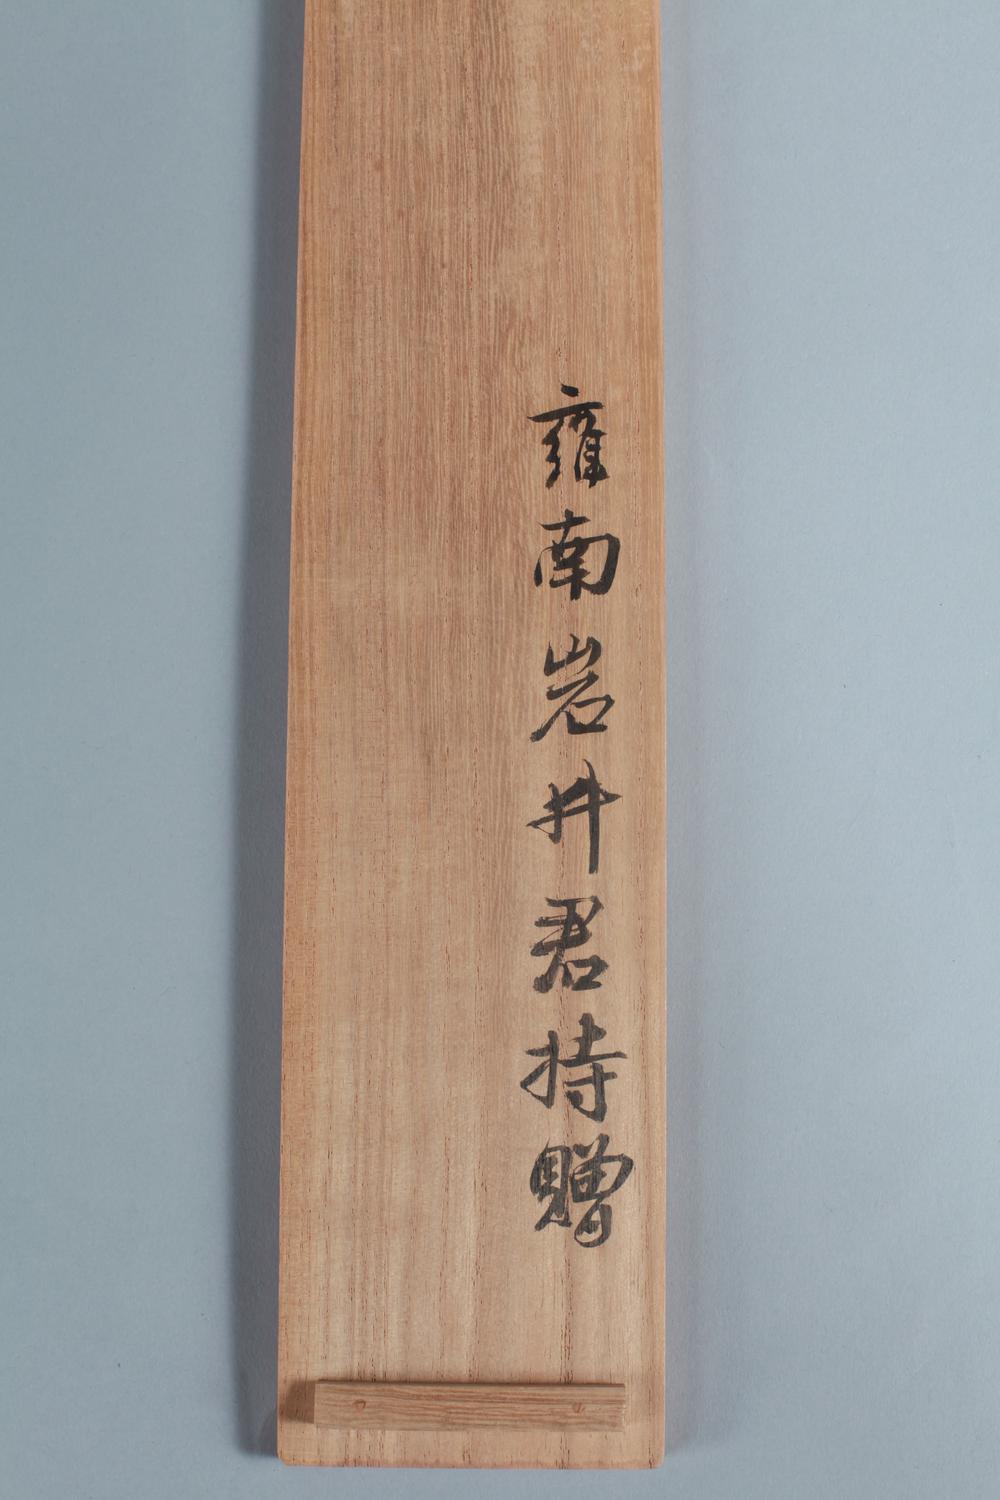 雍南岩井君持贈